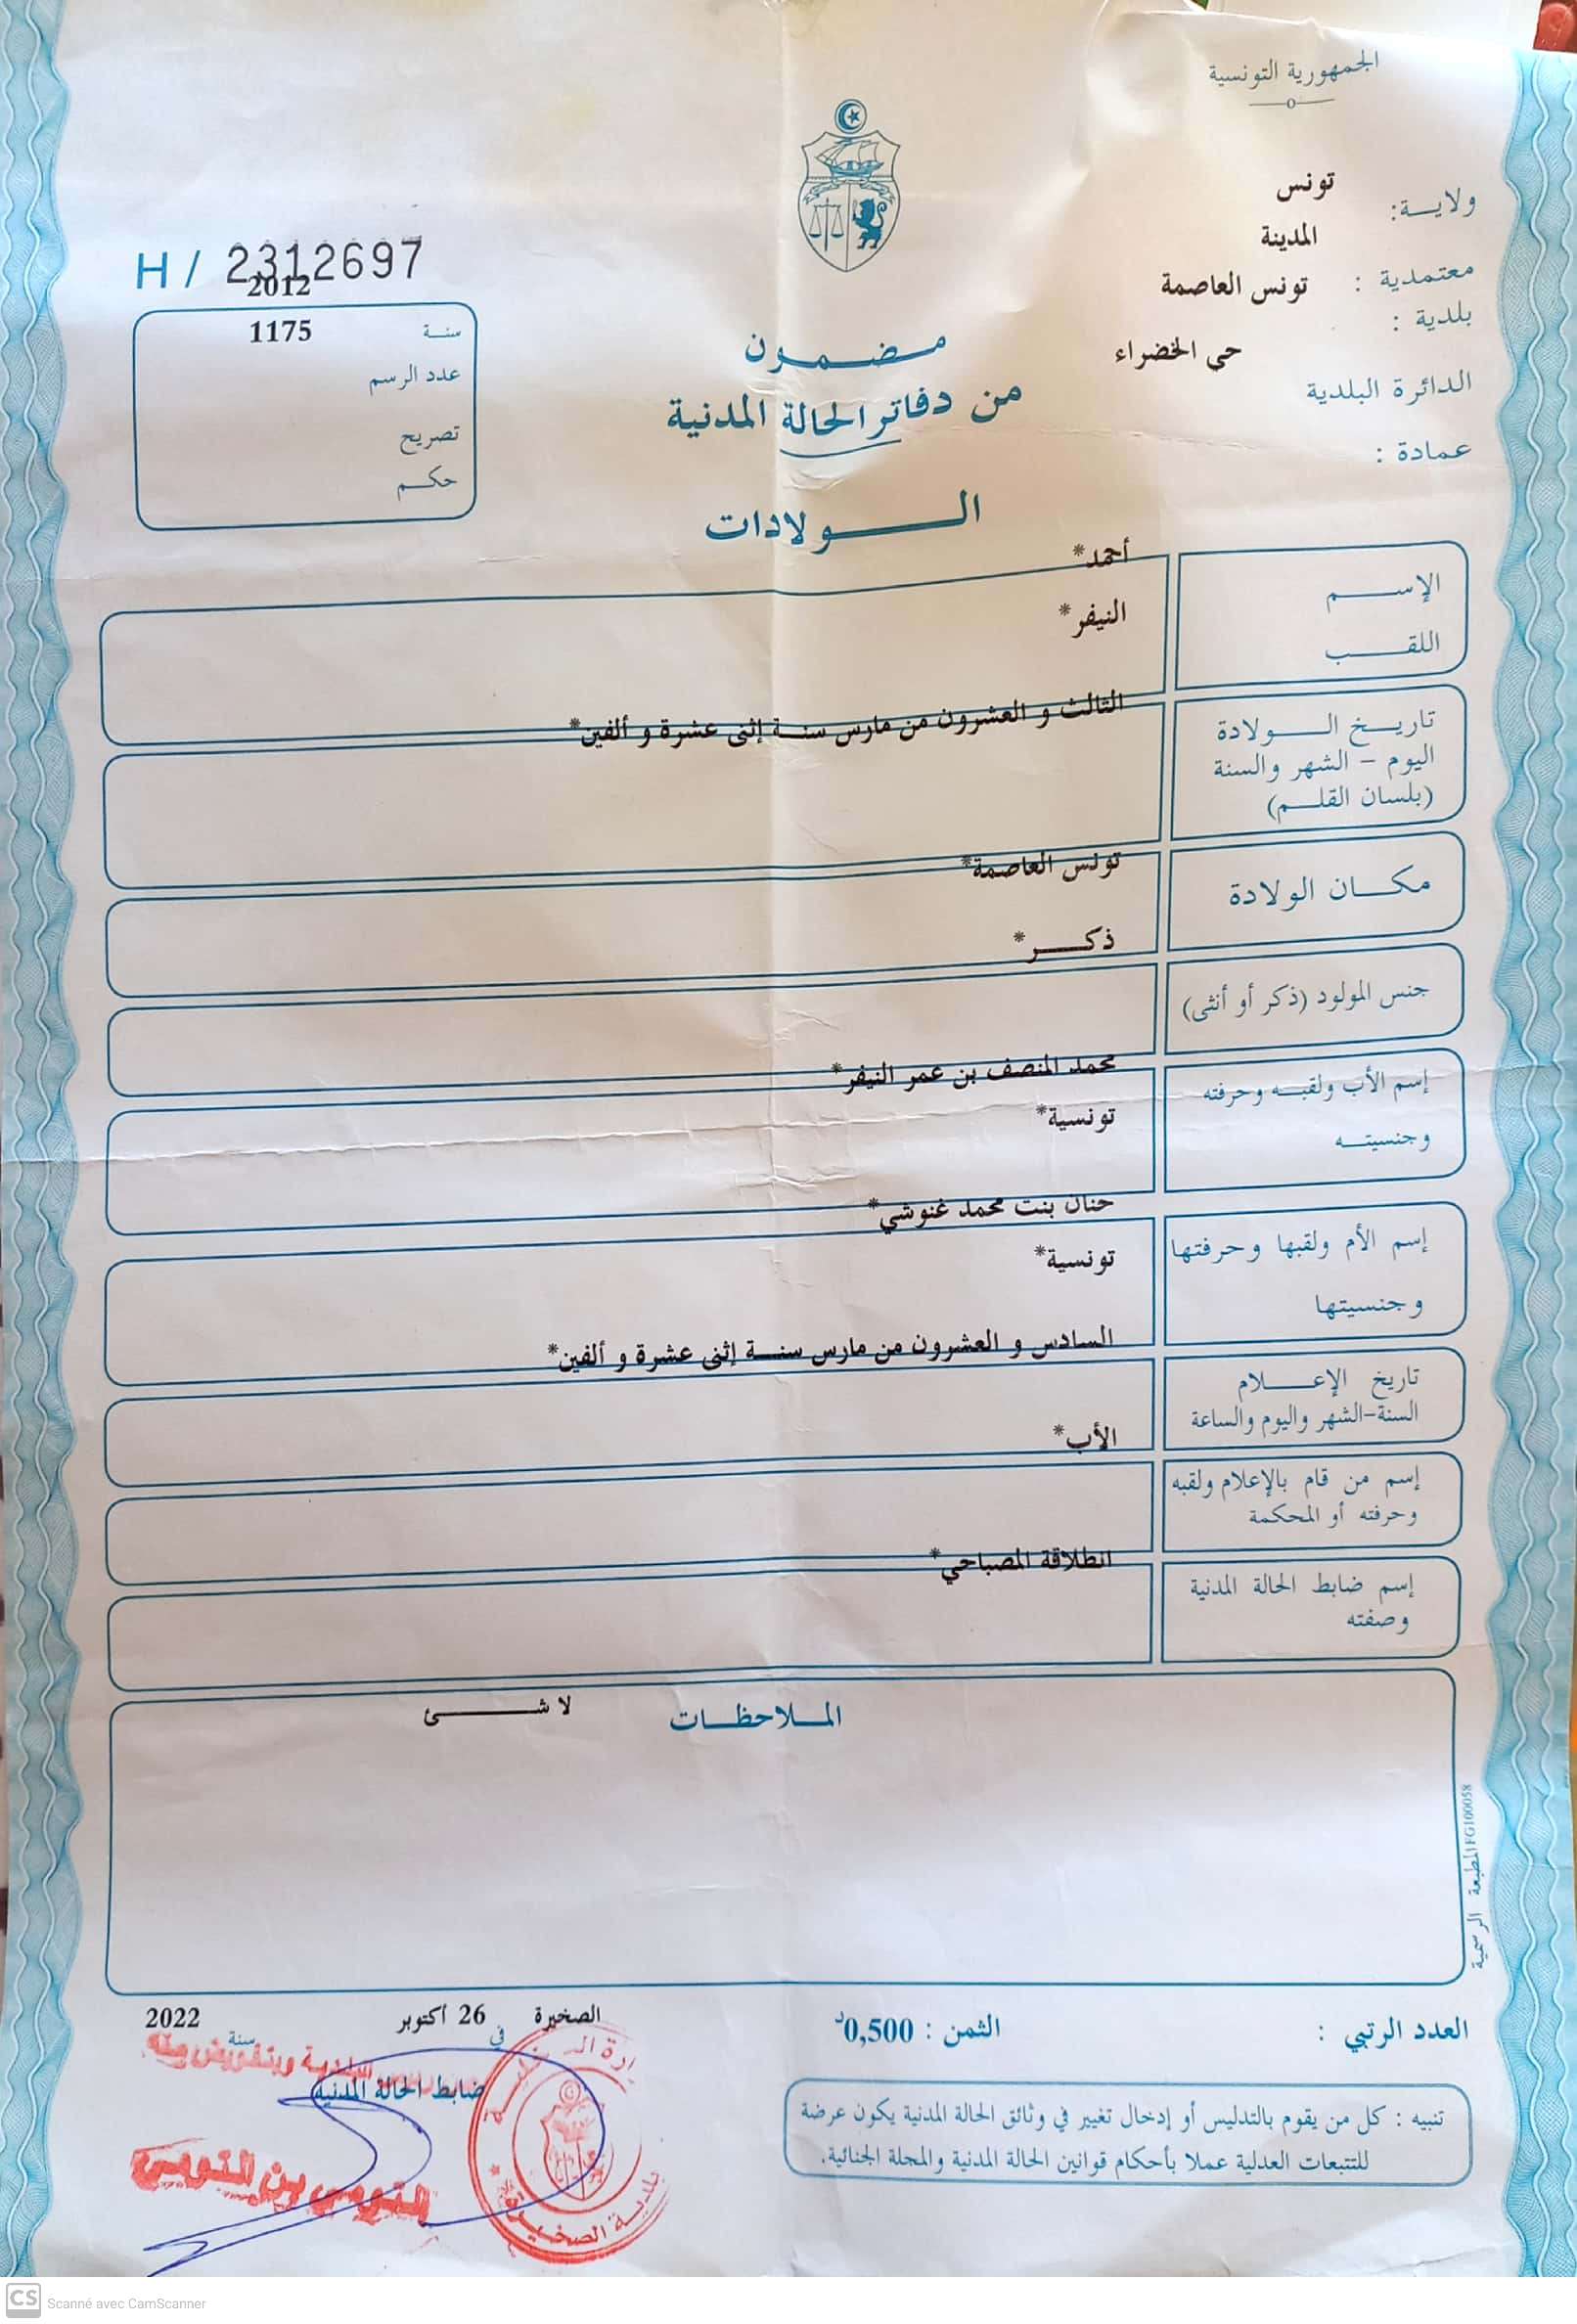 الجمهورية التونسية
ولايـــة: تونس
معتمدية : المدينة
بلدية : تونس العاصمة
الدائرة البلدية حي الخضراء
عمادة :
H / 2312697
2012
سنـة 1175
عدد الرسم
تصريح
حكـــم
مـضـمـون
من دفاتر الحالة المدنية
الـــولادات
الإســـم أحمد*
اللقـــب النيفر*
تاريــخ الـــولادة الثالث و العشرون من مارس سنــة إثنى عشرة و ألفين*
اليوم – الشهر والسنة
(بلسان القلـــم)
مكـــان الولادة تونس العاصمة*
جنس المولود (ذكر أو أنثى) ذكـــر*
إسم الأب ولقبـــه وحرفته محمد المنصف بن عمر النيفر*
وجنسيتـــه تونسية*
إسم الأم ولقبها وحرفتها حنان بنت محمد غنوشي*
وجنسيتها تونسية*
تاريخ الإعـــلام السادس و العشرون من مارس سنــة إثنى عشرة و ألفين*
السنة-الشهر واليوم والساعة
إسم من قام بالإعلام ولقبه الأب*
وحرفته أو المحكمة
إسم ضابط الحالة المدنية انطلاقة المصباحي*
وصفته
الملاحظـــات لا شـــئ
المطبعة الرسمية FG100058
العدد الرتبي :
الثمن : 0,500د
الصخيرة في 26 أكتوبر سنة 2022
ضابط الحالة المدنية
وبتفويض منه
التومي بن التومي
بلدية الصخيرة
تنبيه : كل من يقوم بالتدليس أو إدخال تغيير في وثائق الحالة المدنية يكون عرضة
للتتبعات العدلية عملا بأحكام قوانين الحالة المدنية والمجلة الجنائية.
CS Scanné avec CamScanner